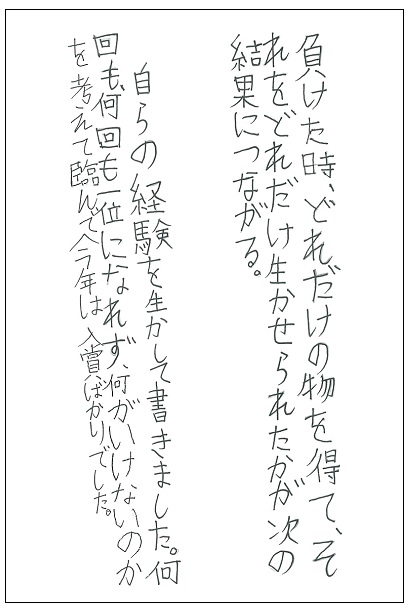 負けた時、どれだけの物を得て、そ
れをどれだけ生かせられたかが次の
結果につながる。
自らの経験を生かして書きました。何
回も、何回も一位になれず、何がいけないのか
を考えて臨んで今年は入賞ばかりでした。